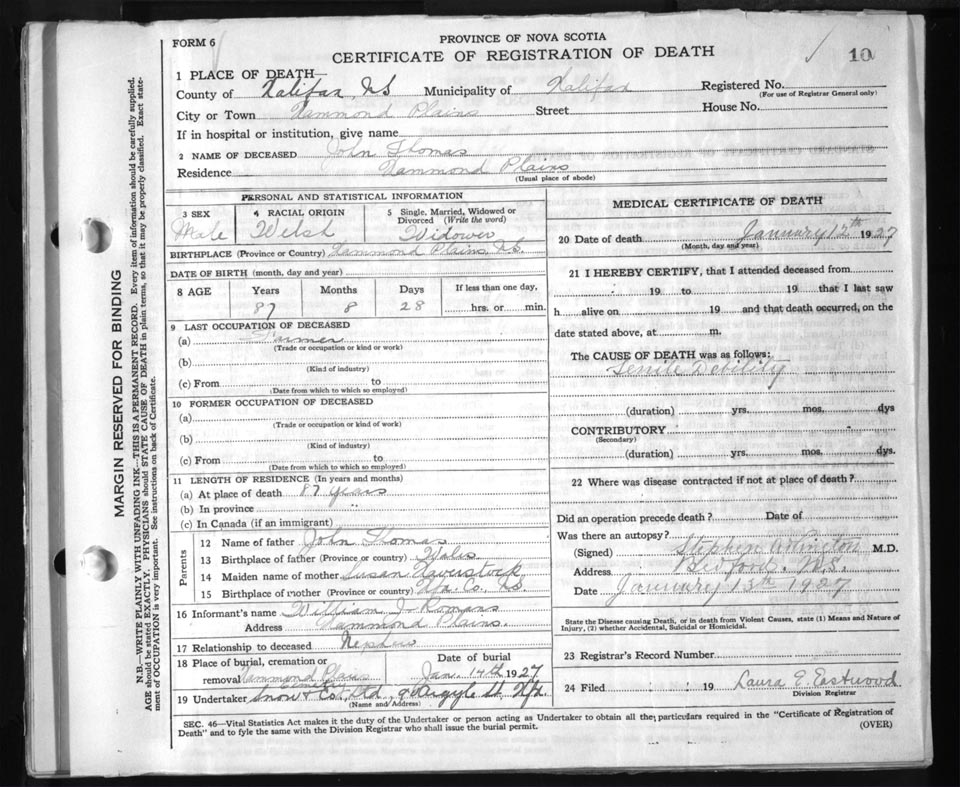 FORM 6
PROVINCE OF NOVA SCOTIA
CERTIFICATE OF REGISTRATION OF DEATH
10
1 PLACE OF DEATH—
County of Halifax NS Municipality of Halifax Registered No.
(For use of Registrar General only)
City or Town Hammond Plains Street House No.
If in hospital or institution, give name
2 NAME OF DECEASED John Thomas
Residence Hammond Plains
(Usual place of abode)
PERSONAL AND STATISTICAL INFORMATION
3 SEX Male
4 RACIAL ORIGIN Welsh
5 Single, Married, Widowed or Divorced (Write the word) Widower
BIRTHPLACE (Province or Country) Hammond Plains, N.S.
DATE OF BIRTH (month, day and year)
8 AGE Years Months Days If less than one day,
87 8 28 hrs. or min.
9 LAST OCCUPATION OF DECEASED
(a) Farmer
(Trade or occupation or kind or work)
(b)
(Kind of industry)
(c) From to
(Date from which to which so employed)
10 FORMER OCCUPATION OF DECEASED
(a)
(Trade or occupation or kind of work)
(b)
(Kind of industry)
(c) From to
(Date from which to which so employed)
11 LENGTH OF RESIDENCE (In years and months)
(a) At place of death 87 years
(b) In province "
(c) In Canada (if an immigrant)
Parents
12 Name of father John Thomas
13 Birthplace of father (Province or country) Wales
14 Maiden name of mother Susan Haverstock
15 Birthplace of mother (Province or country) Hfx. Co., N.S.
16 Informant's name William J. Romans
Address Hammond Plains.
17 Relationship to deceased Nephew
18 Place of burial, cremation or Date of burial
removal Hammond Plains Cemetery Jan. 14th 1927
19 Undertaker Snow & Co., Ltd, Argyle St. Hfx.
(Name and Address)
MEDICAL CERTIFICATE OF DEATH
20 Date of death January 12th 1927
(Month, day and year)
21 I HEREBY CERTIFY, that I attended deceased from
19 to 19 that I last saw
h alive on 19 and that death occurred, on the
date stated above, at m.
The CAUSE OF DEATH was as follows:
Senile Debility
(duration) yrs. mos. dys
CONTRIBUTORY
(Secondary)
(duration) yrs. mos. dys.
22 Where was disease contracted if not at place of death?
Did an operation precede death? Date of
Was there an autopsy?
(Signed) Stephen M.D.
Address Bedford. N.S.
Date January 13th 1927
State the Disease causing Death, or in death from Violent Causes, state (1) Means and Nature of
Injury, (2) whether Accidental, Suicidal or Homicidal.
23 Registrar's Record Number
24 Filed 19 Laura E. Eastwood
Division Registrar
SEC. 46—Vital Statistics Act makes it the duty of the Undertaker or person acting as Undertaker to obtain all the particulars required in the "Certificate of Registration of
Death" and to fyle the same with the Division Registrar who shall issue the burial permit.
(OVER)
MARGIN RESERVED FOR BINDING
N.B.—WRITE PLAINLY WITH UNFADING INK—THIS IS A PERMANENT RECORD. Every item of information should be carefully supplied.
AGE should be stated EXACTLY. PHYSICIANS should STATE CAUSE OF DEATH in plain terms, so that it may be properly classified. Exact state-
ment of OCCUPATION is very important. See instructions on back of Certificate.